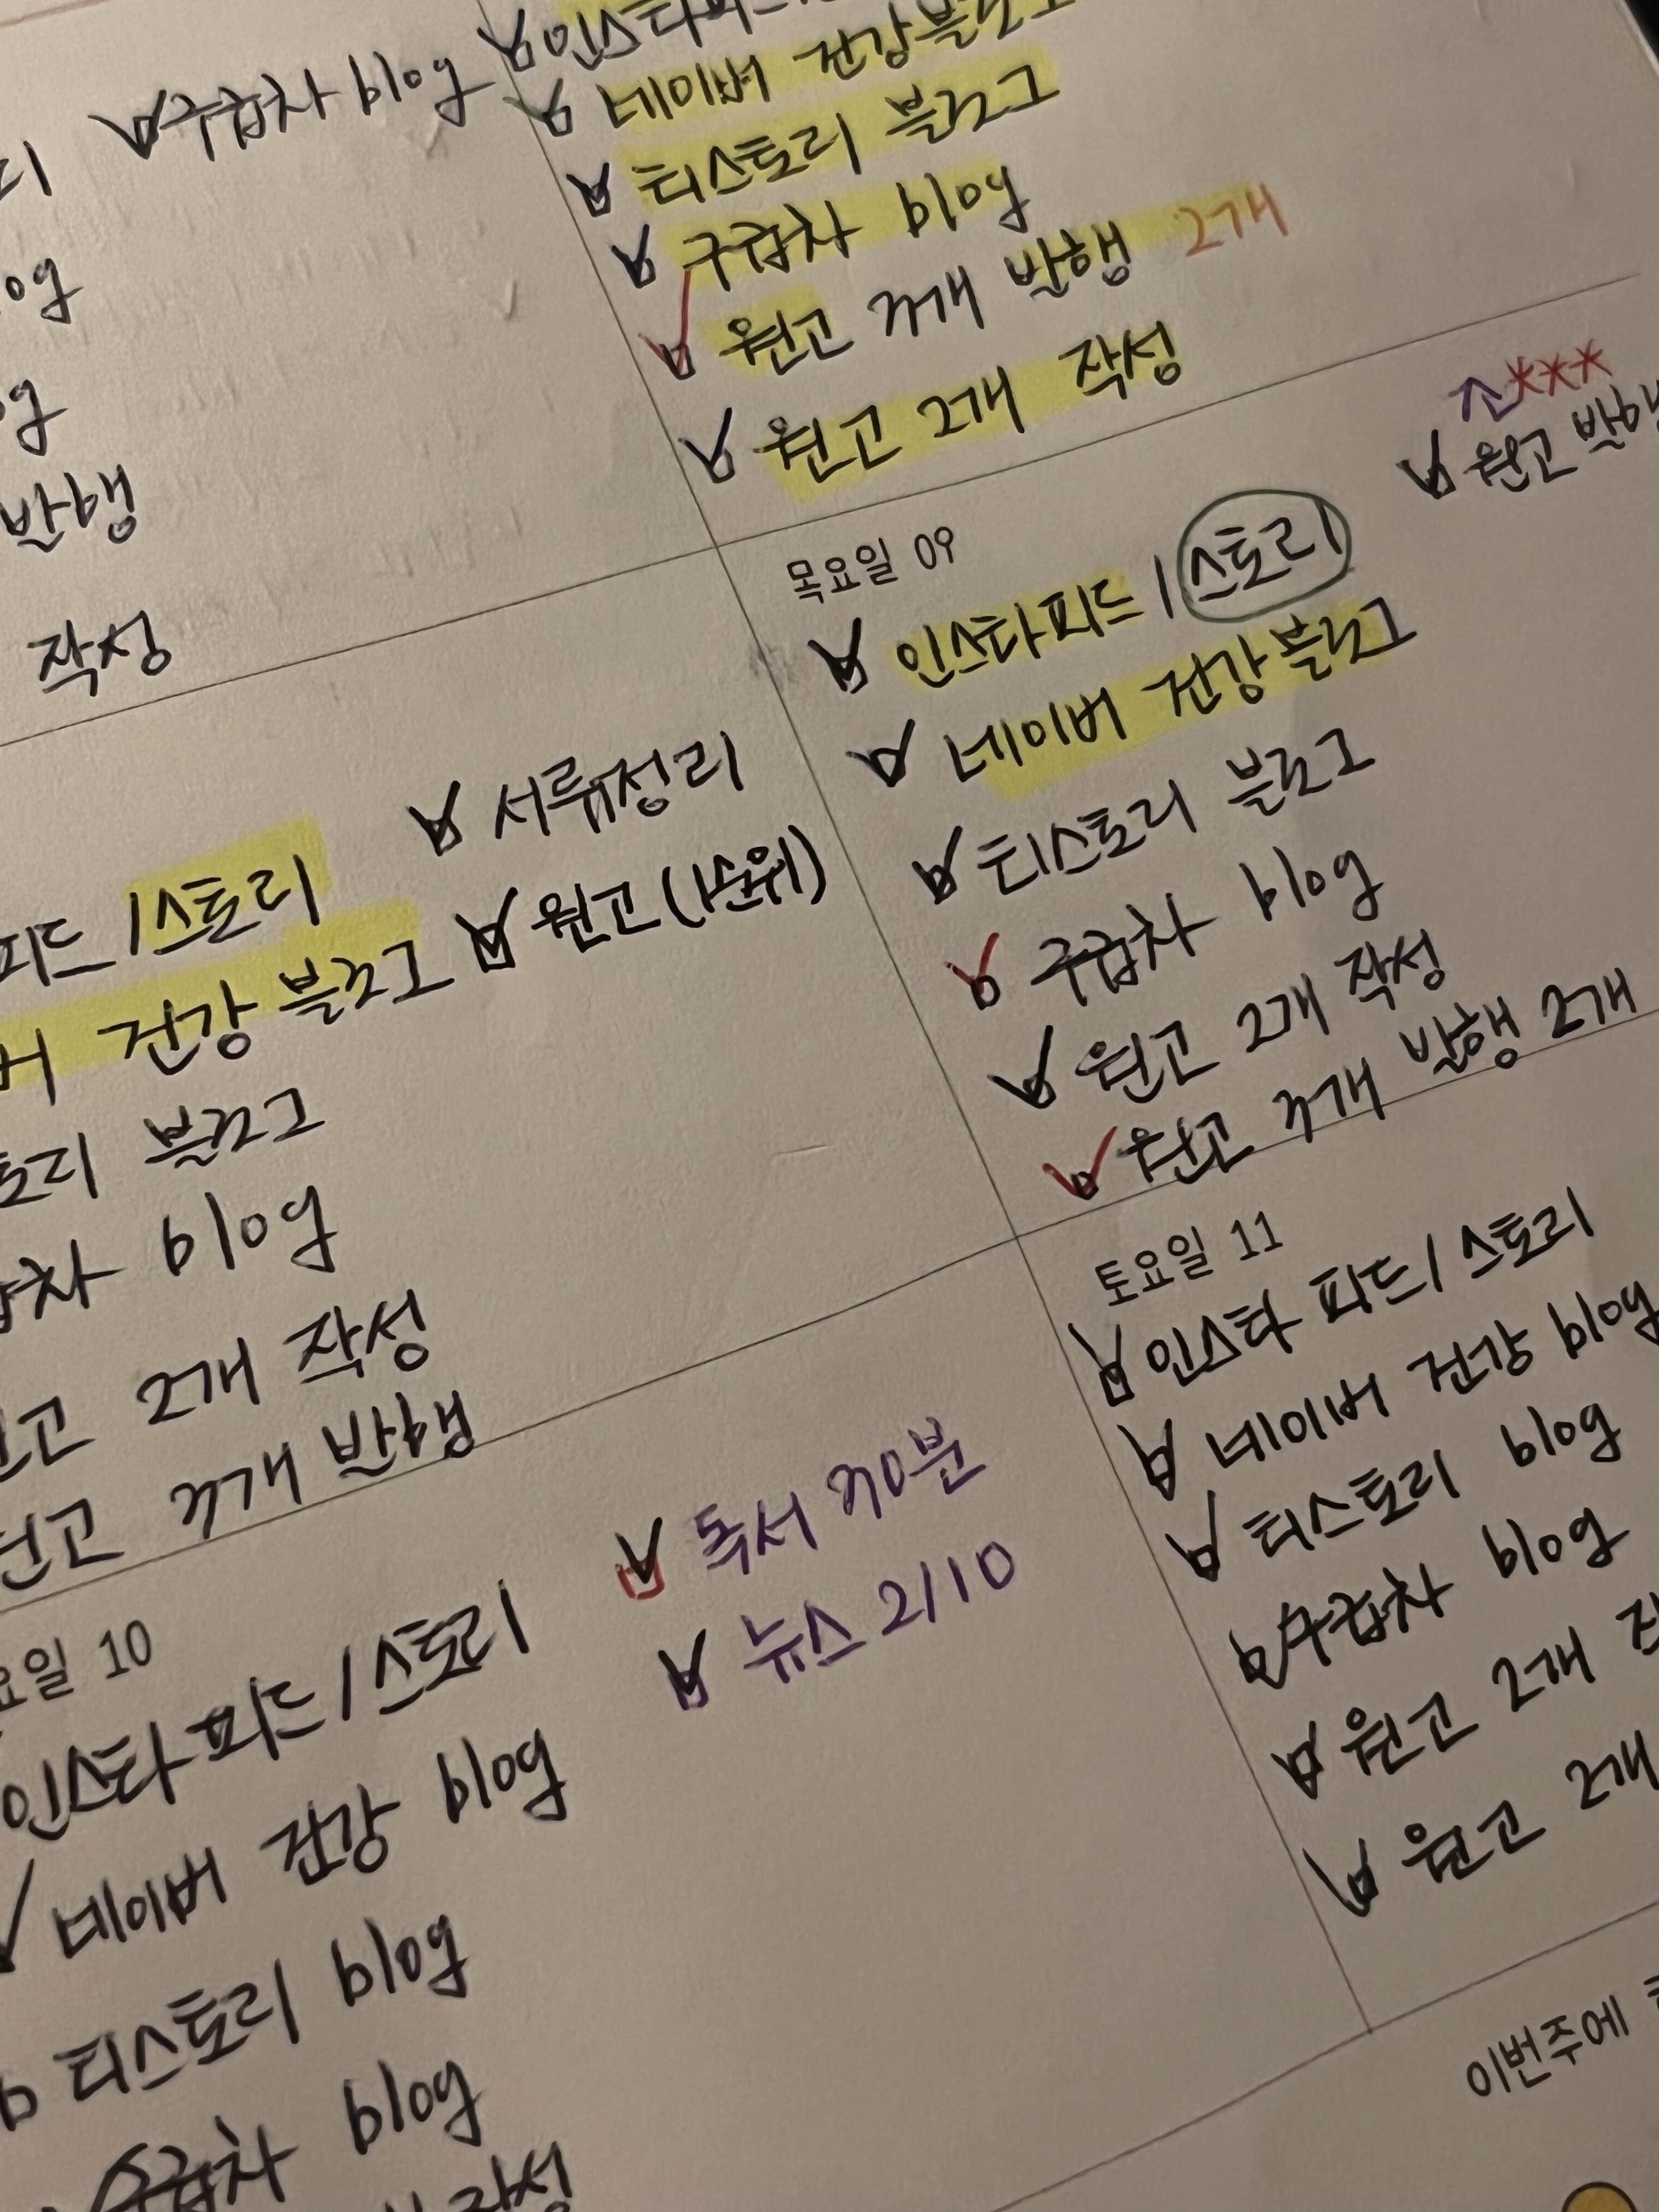 구급차 blog
반행
작성
네이버 건강블로그
티스토리 블로그
구급차 blog
원고 3개 발행 2개
원고 2개 작성
피드 / 스토리
건강블로그
블로그
blog
2개 작성
3개 발행
서류정리
원고(1순위)
목요일 09
인스타피드 / 스토리
네이버 건강블로그
티스토리 블로그
구급차 blog
원고 2개 작성
원고 3개 발행 2개
***
원고
요일 10
인스타피드 / 스토리
네이버 건강 blog
티스토리 blog
구급차 blog
작성
독서 30분
뉴스 2/10
토요일 11
인스타 피드 / 스토리
네이버 건강 blog
티스토리 blog
구급차 blog
원고 2개
원고 2개
이번주에